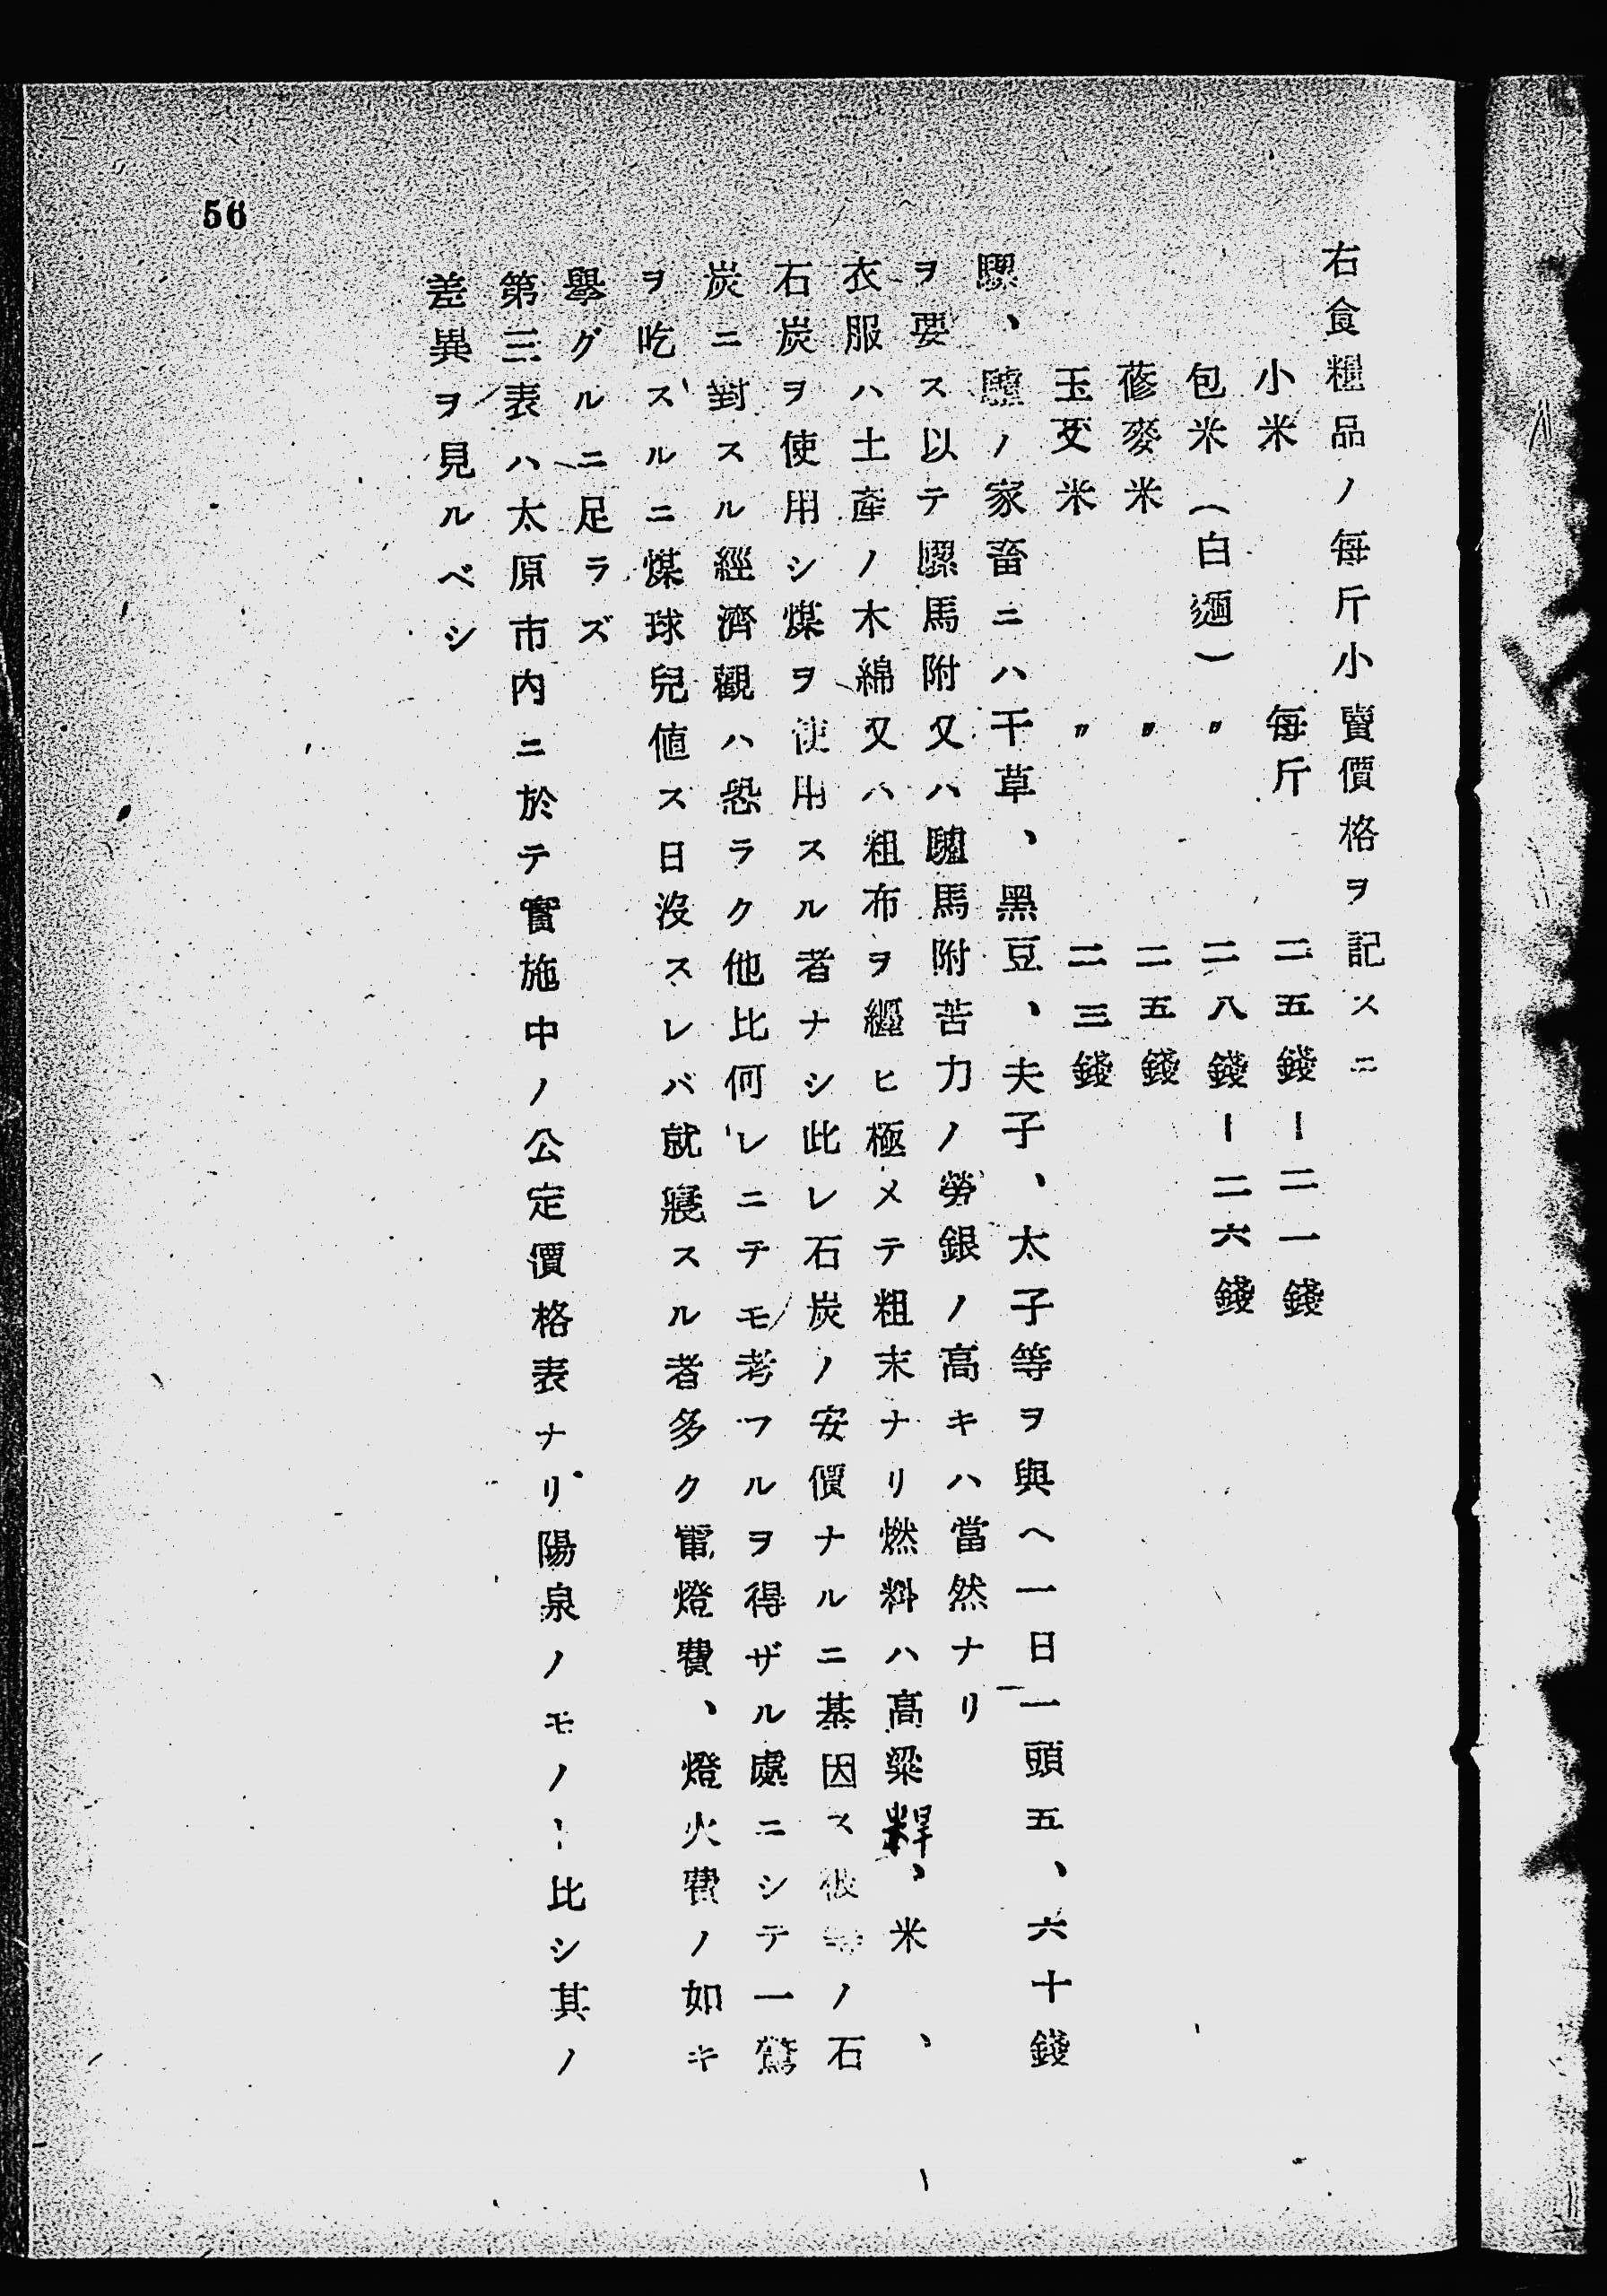 右食糧品ノ每斤小賣價格ヲ記スニ
小米　每斤　二五錢ー二一錢
包米(白麺)　〃　二八錢ー二六錢
蓚麥米　〃　二五錢
玉茭米　〃　二三錢
騾、驢ノ家畜ニハ干草、黑豆、夫子、太子等ヲ與ヘ一日一頭五、六十錢
ヲ要ス以テ騾馬附又ハ驢馬附苦力ノ勞銀ノ高キハ當然ナリ
衣服ハ土產ノ木綿又ハ粗布ヲ纒ヒ極メテ粗末ナリ燃料ハ高粱稈、米、
石炭ヲ使用シ煤ヲ使用スル者ナシ此レ石炭ノ安價ナルニ基因ス彼等ノ石
炭ニ對スル經濟觀ハ恐ラク他比何レニテモ考フルヲ得ザル處ニシテ一驚
ヲ吃スルニ煤球兒値ス日沒スレバ就寢スル者多ク電燈費、燈火費ノ如キ
擧グルニ足ラズ
第三表ハ太原市內ニ於テ實施中ノ公定價格表ナリ陽泉ノモノ比シ其ノ
差異ヲ見ルベシ
56